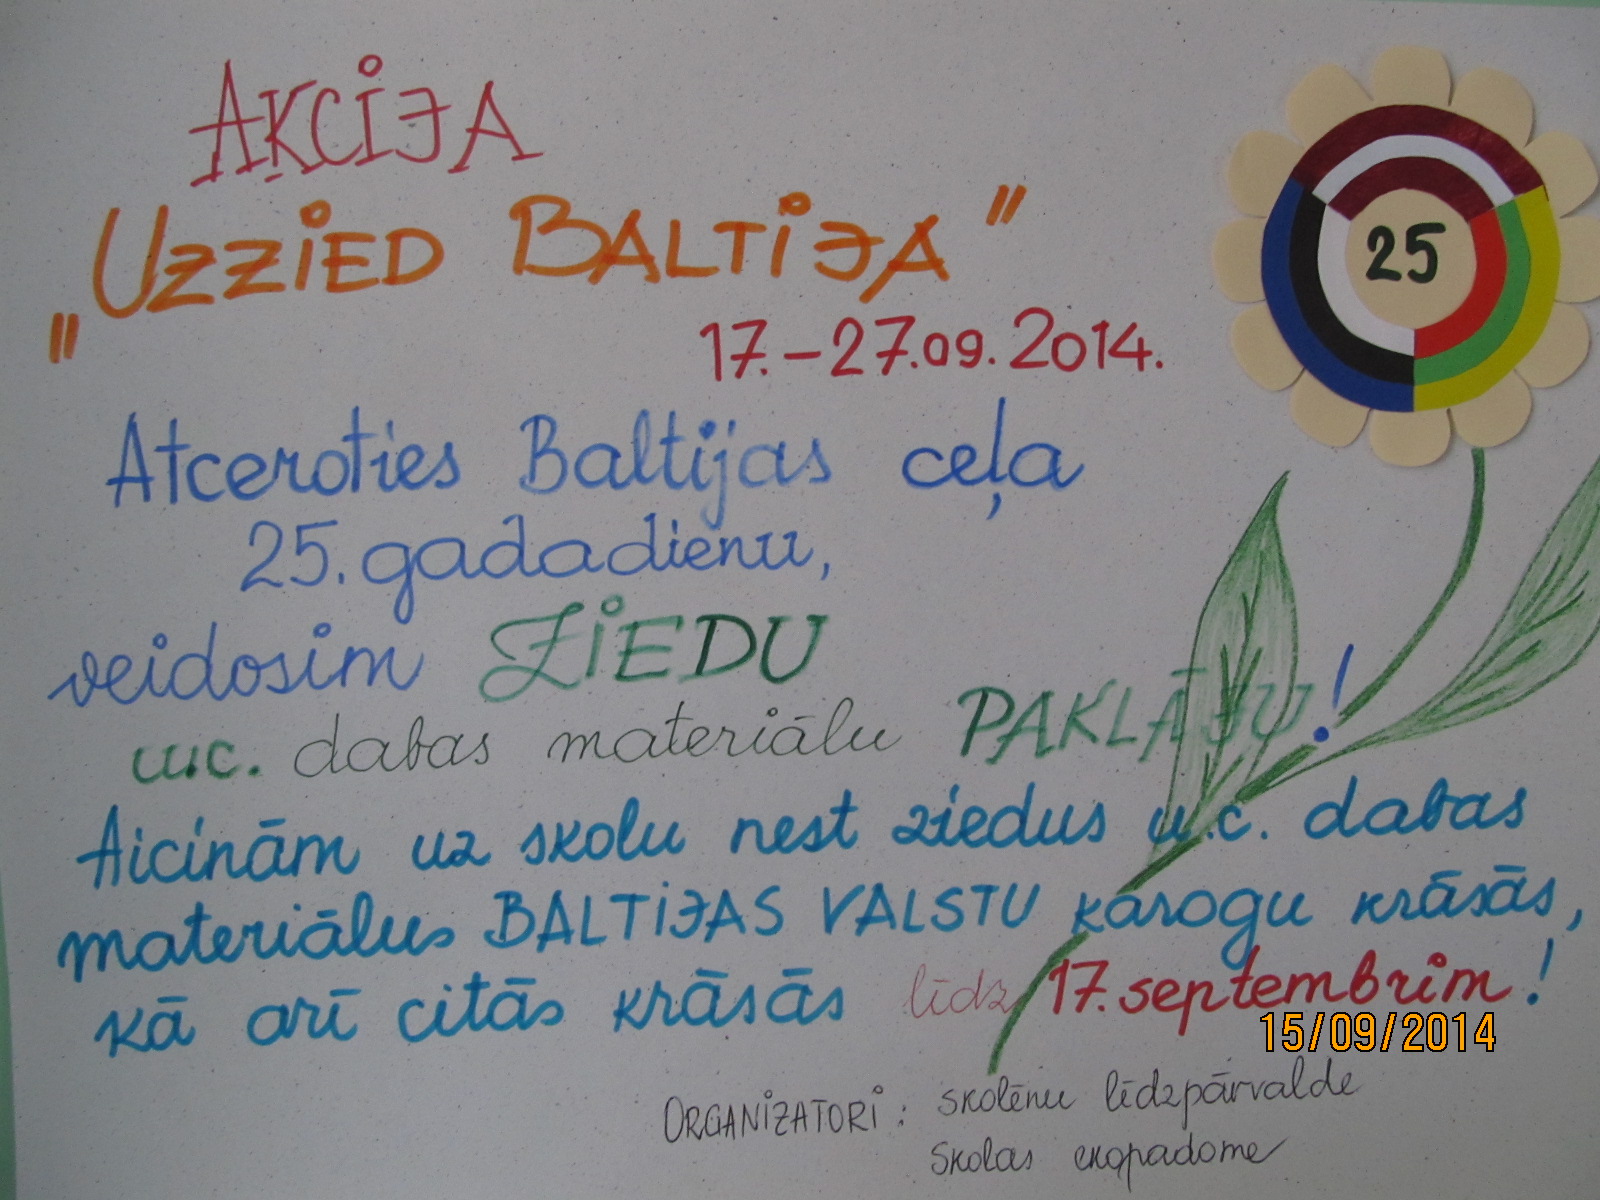 AĶCIJA
„UZZIED BALTIJA"
25
17.-27.09.2014.
Atceroties Baltijas ceļa
25. gadadienu,
veidosim ZIEDU
u.c. dabas materiālu PAKLĀJU!
Aicinām uz skolu nest ziedus u.c. dabas
materiālus BALTIJAS VALSTU karogu krāsās,
kā arī citās krāsās līdz 17. septembrim!
15/09/2014
ORGANIZATORI: skolēnu līdzpārvalde
Skolas ekopadome